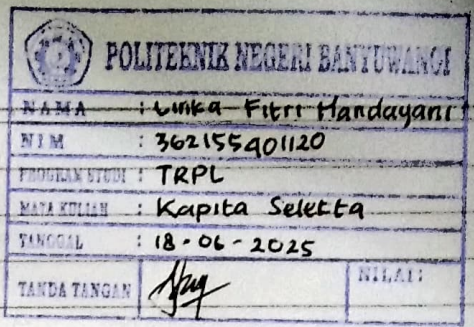 POLITEKNIK NEGERI BANYUWANGI
NAMA : Lirika Fitri Handayani
NIM : 362155401120
PROGRAM STUDI : TRPL
MATA KULIAH : Kapita Selekta
TANGGAL : 18-06-2025
TANDA TANGAN NILAI: